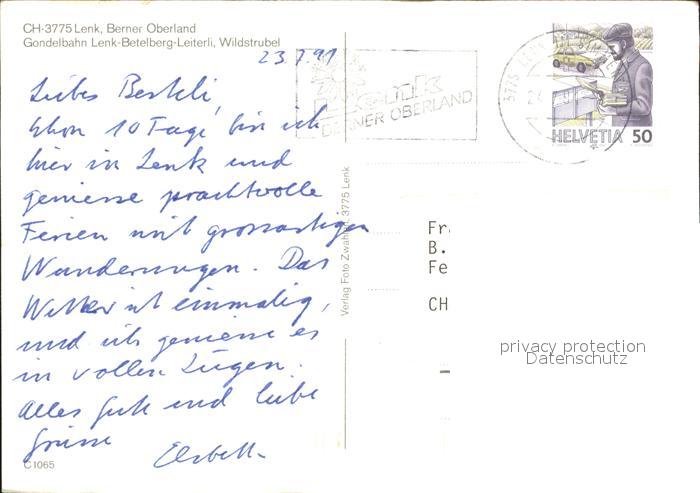 CH-3775 Lenk, Berner Oberland
Gondelbahn Lenk-Betelberg-Leiterli, Wildstrubel
23.7.91
Liebes
Schon 10 Tage bin ich
hier in Lenk und
geniesse prachtvolle
Ferien mit grossartigen
Wanderungen. Das
Wetter ist einmalig,
und ich geniesse es
in vollen Zügen.
Alles Gute und liebe
Grüsse
Elsbeth
C1065
Verlag Foto Zwahlen, 3775 Lenk
Lenk
BERNER OBERLAND
3775 LENK
HELVETIA 50
Fr.
B.
Fe
CH
privacy protection
Datenschutz